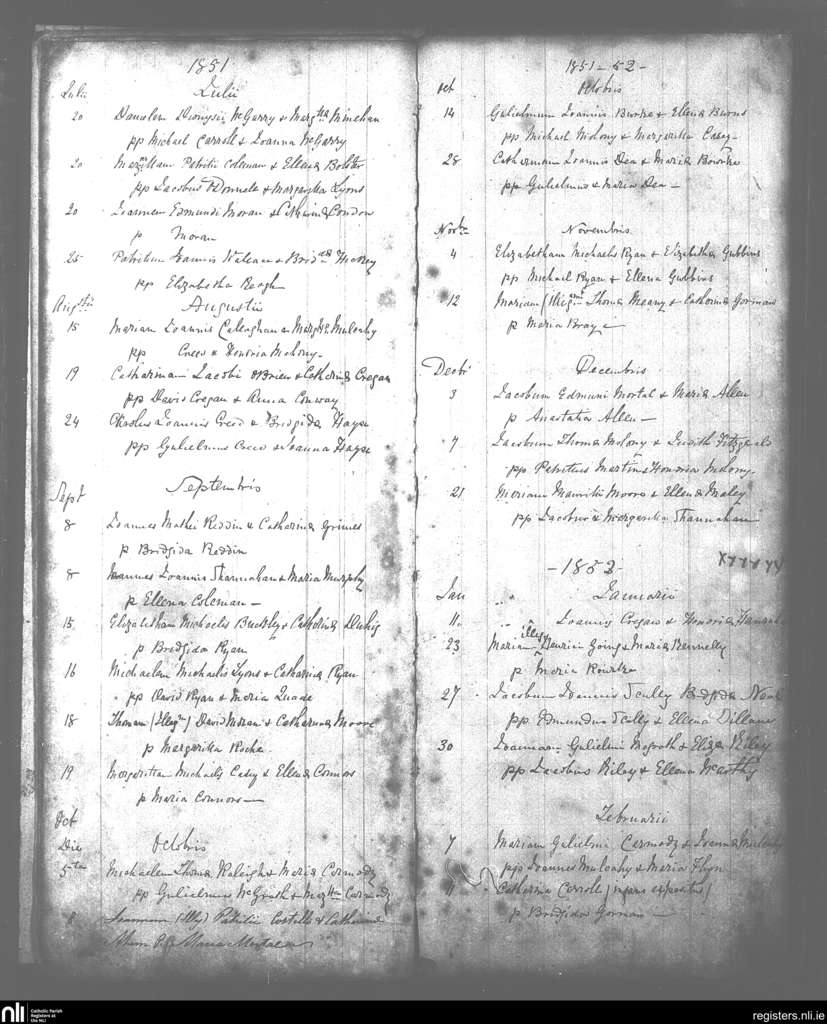 1851
Julii
Julii
20 Danielem Dionysii McGarry & Margtta Minehan
pp Michael Carroll & Joanna McGarry
20 Patritii Coleman & Ellena Bolster
pp Jacobus & Margaritta Lyons
20 Joannem Edmundi Moran & Catherina Condon
p Moran
25 Patritium Joannis & Hickey
pp Elizabetha Reagh
Augstii
Augustii
15 Mariam Joannis Calleaghan & Mulcahy
pp Creed & Honoria Mahony
19 Catharinam Jacobi OBrien & Catherina Cregan
pp David Cregan & Anna Conway
24 Joannis Creed & Bridgida Hayse
pp Gulielmus Creed & Joanna Hayse
Septembris
Sept
8 Joannes Mathei Reddin & Catharina Grimes
p Bridgida Reddin
8 Joannes Joannis Shannahan & Maria Murphy
p Ellena Coleman
15 Elizabetham Michaelis Buckley & Catherina
p Bridgida Ryan
16 Michaelem Michaelis Lyons & Catharina Ryan
pp David Ryan & Maria Quade
18 Thomam (Illegm) David Moran & Catharina Moore
p Margaritta Roche
19 Margarittam Michaelis Casey & Ellena Connors
p Maria Connors
Oct
Die Octobris
5ta Michaelem Thoma Raleigh & Maria Carmody
pp Gulielmus McGrath & Margtta Carmody
8 Joannem (Illeg) Patritii Costello & Catharina
Ahern P. Maria
1851-52-
Oct Octobris
14 Gulielmum Joannis Bourke & Ellena Burns
pp Michael Molony & Margaritta Casey
28 Catharinam Joannis Dea & Maria Bourke
pp Gulielmus & Maria Dea
Novbr Novembris
4 Elizabetham Michaelis Ryan & Elizabetha Gubbins
pp Michael Ryan & Ellena Gubbins
12 Mariam (Illegm) Thoma Meany & Catharina Gorman
p Maria Bray
Decbr Decembris
3 Jacobum Edmuni Mortal & Maria Allen
p Anastatia Allen
7 Jacobum Thoma Molony & Judith Fitzgerald
pp Patritius Martin & Honoria Molony
21 Mariam Mauritii Moore & Ellena Maley
pp Jacobus & Margaritta Shannahan
-1852-
xxxxxx
Jan Januarii
11 Joannis Cregan & Honoria
illeg
23 Mariam Going & Maria Kennelly
p Maria Rourke
27 Jacobum Joannis Sculley Bridgida
pp Edmundus Scully & Ellena Dillane
30 Joannam Gulielmi Mcgrath & Eliza Riley
pp Jacobus Riley & Ellena McCarthy
Februarii
7 Mariam Gulielmi Carmody & Joanna Mulcahy
pp Joannes Mulcahy & Maria Flyn
11 Catharina Carroll (infans expositus)
p Bridgida Gorman
nli Catholic Parish Registers at the NLI
registers.nli.ie